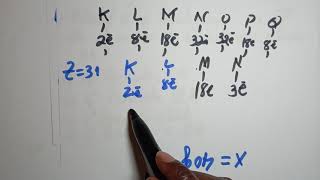 K L M N O P Q
2ē 8ē 18ē 32ē 32ē 18ē 8ē
Z=31 K L M N
2ē 8ē 18ē 3ē